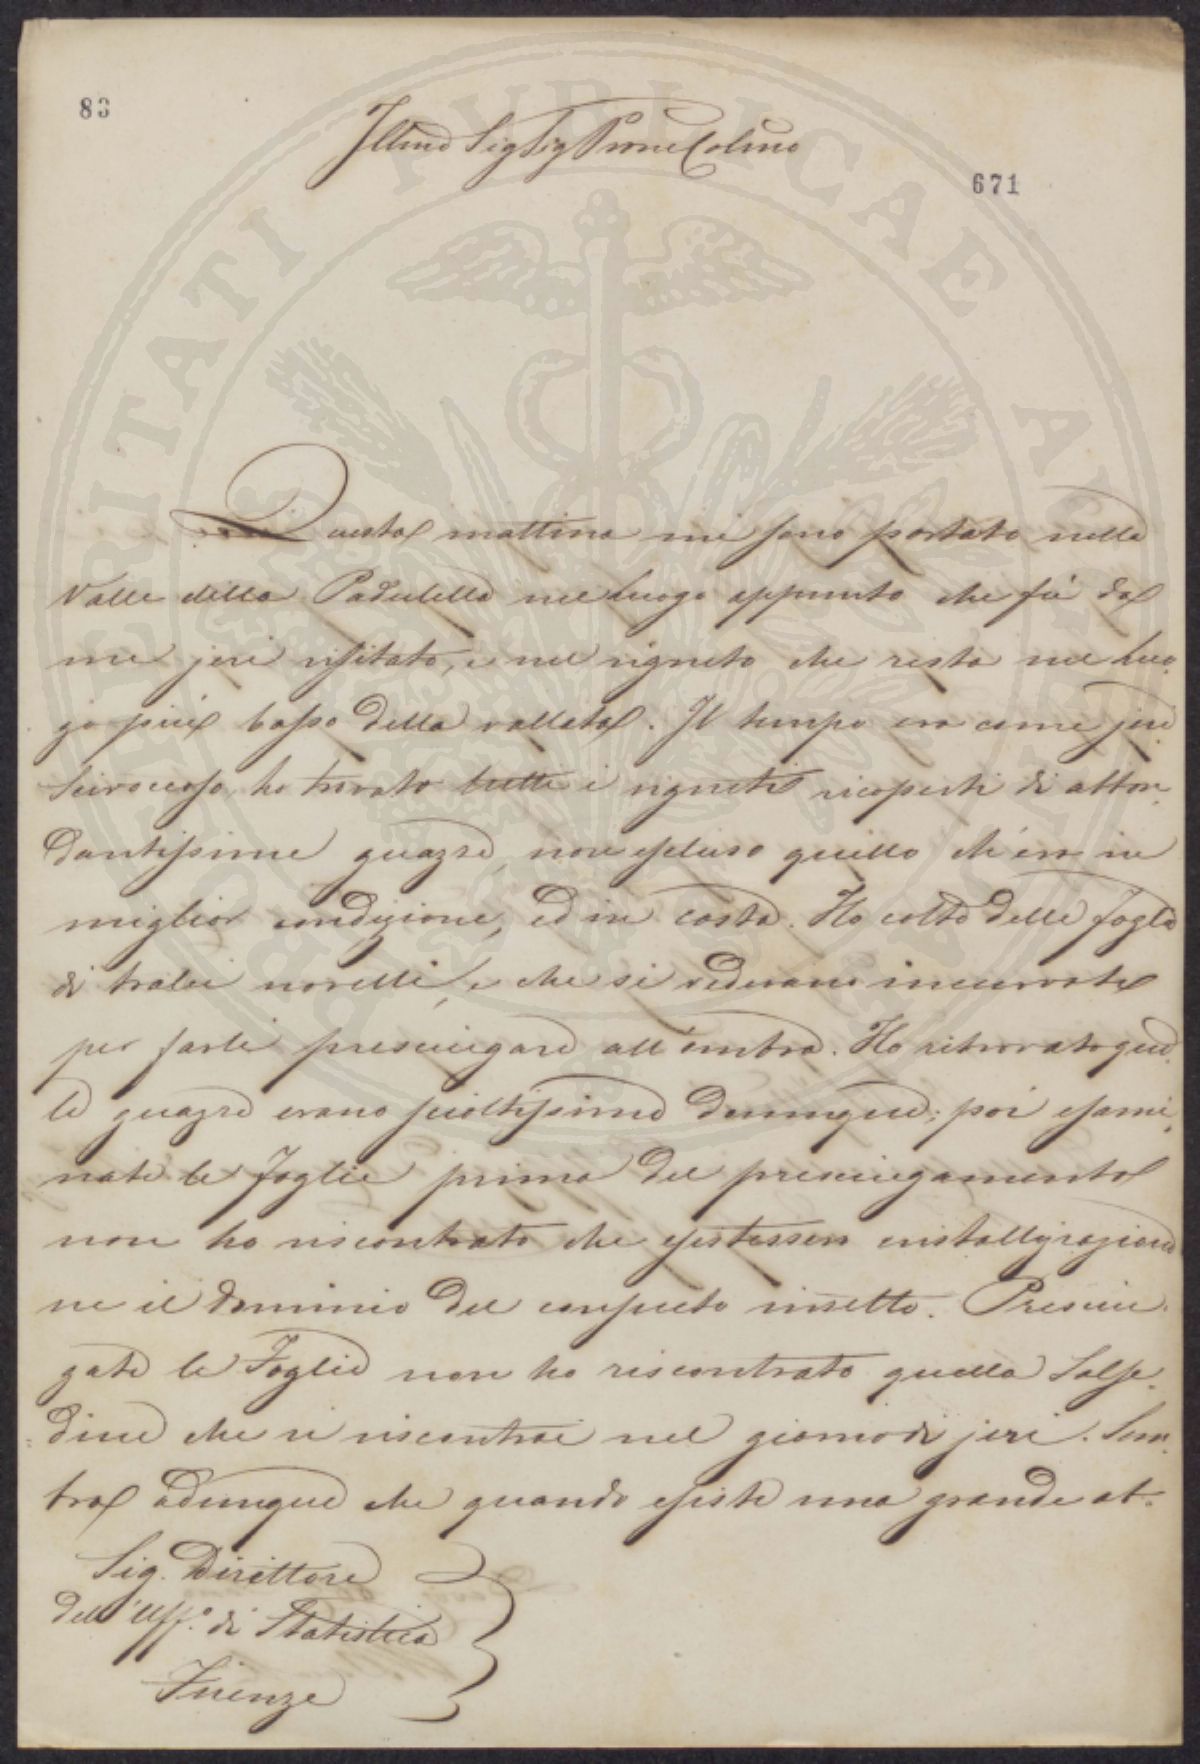 83
Illmo Sig Sig Prone Colmo
671
Questa mattina mi sono portato nella
Valle della Padulella nel luogo appunto che fù da
me jeri visitato, e nel vigneto che resta nel luo-
go più basso della vallata. Il tempo era come jeri
Sciroccoso, ho trovato tutti i vigneti ricoperti di abbon-
dantissime guazze, non escluso quello ch'era in
miglior condizione, ed in costa. Ho colto delle foglie
di tralci novelli, e che si vedevano incurvate
per farle presciugare all'ombra. Ho ritrovato quel-
le guazze erano scioltissime dunque; poi esami-
nate le foglie prima del presciugamento
non ho riscontrato che esistessero cristallizzazioni
ne il dominio del consueto insetto. Presciu-
gate le Foglie non ho riscontrato quella Salse-
dine che vi riscontrai nel giorno di jeri. Sem-
bra adunque che quando esiste una grande ab-
Sig. Direttore
dell'Uff.o di Statistica
Firenze
PUBLICAE